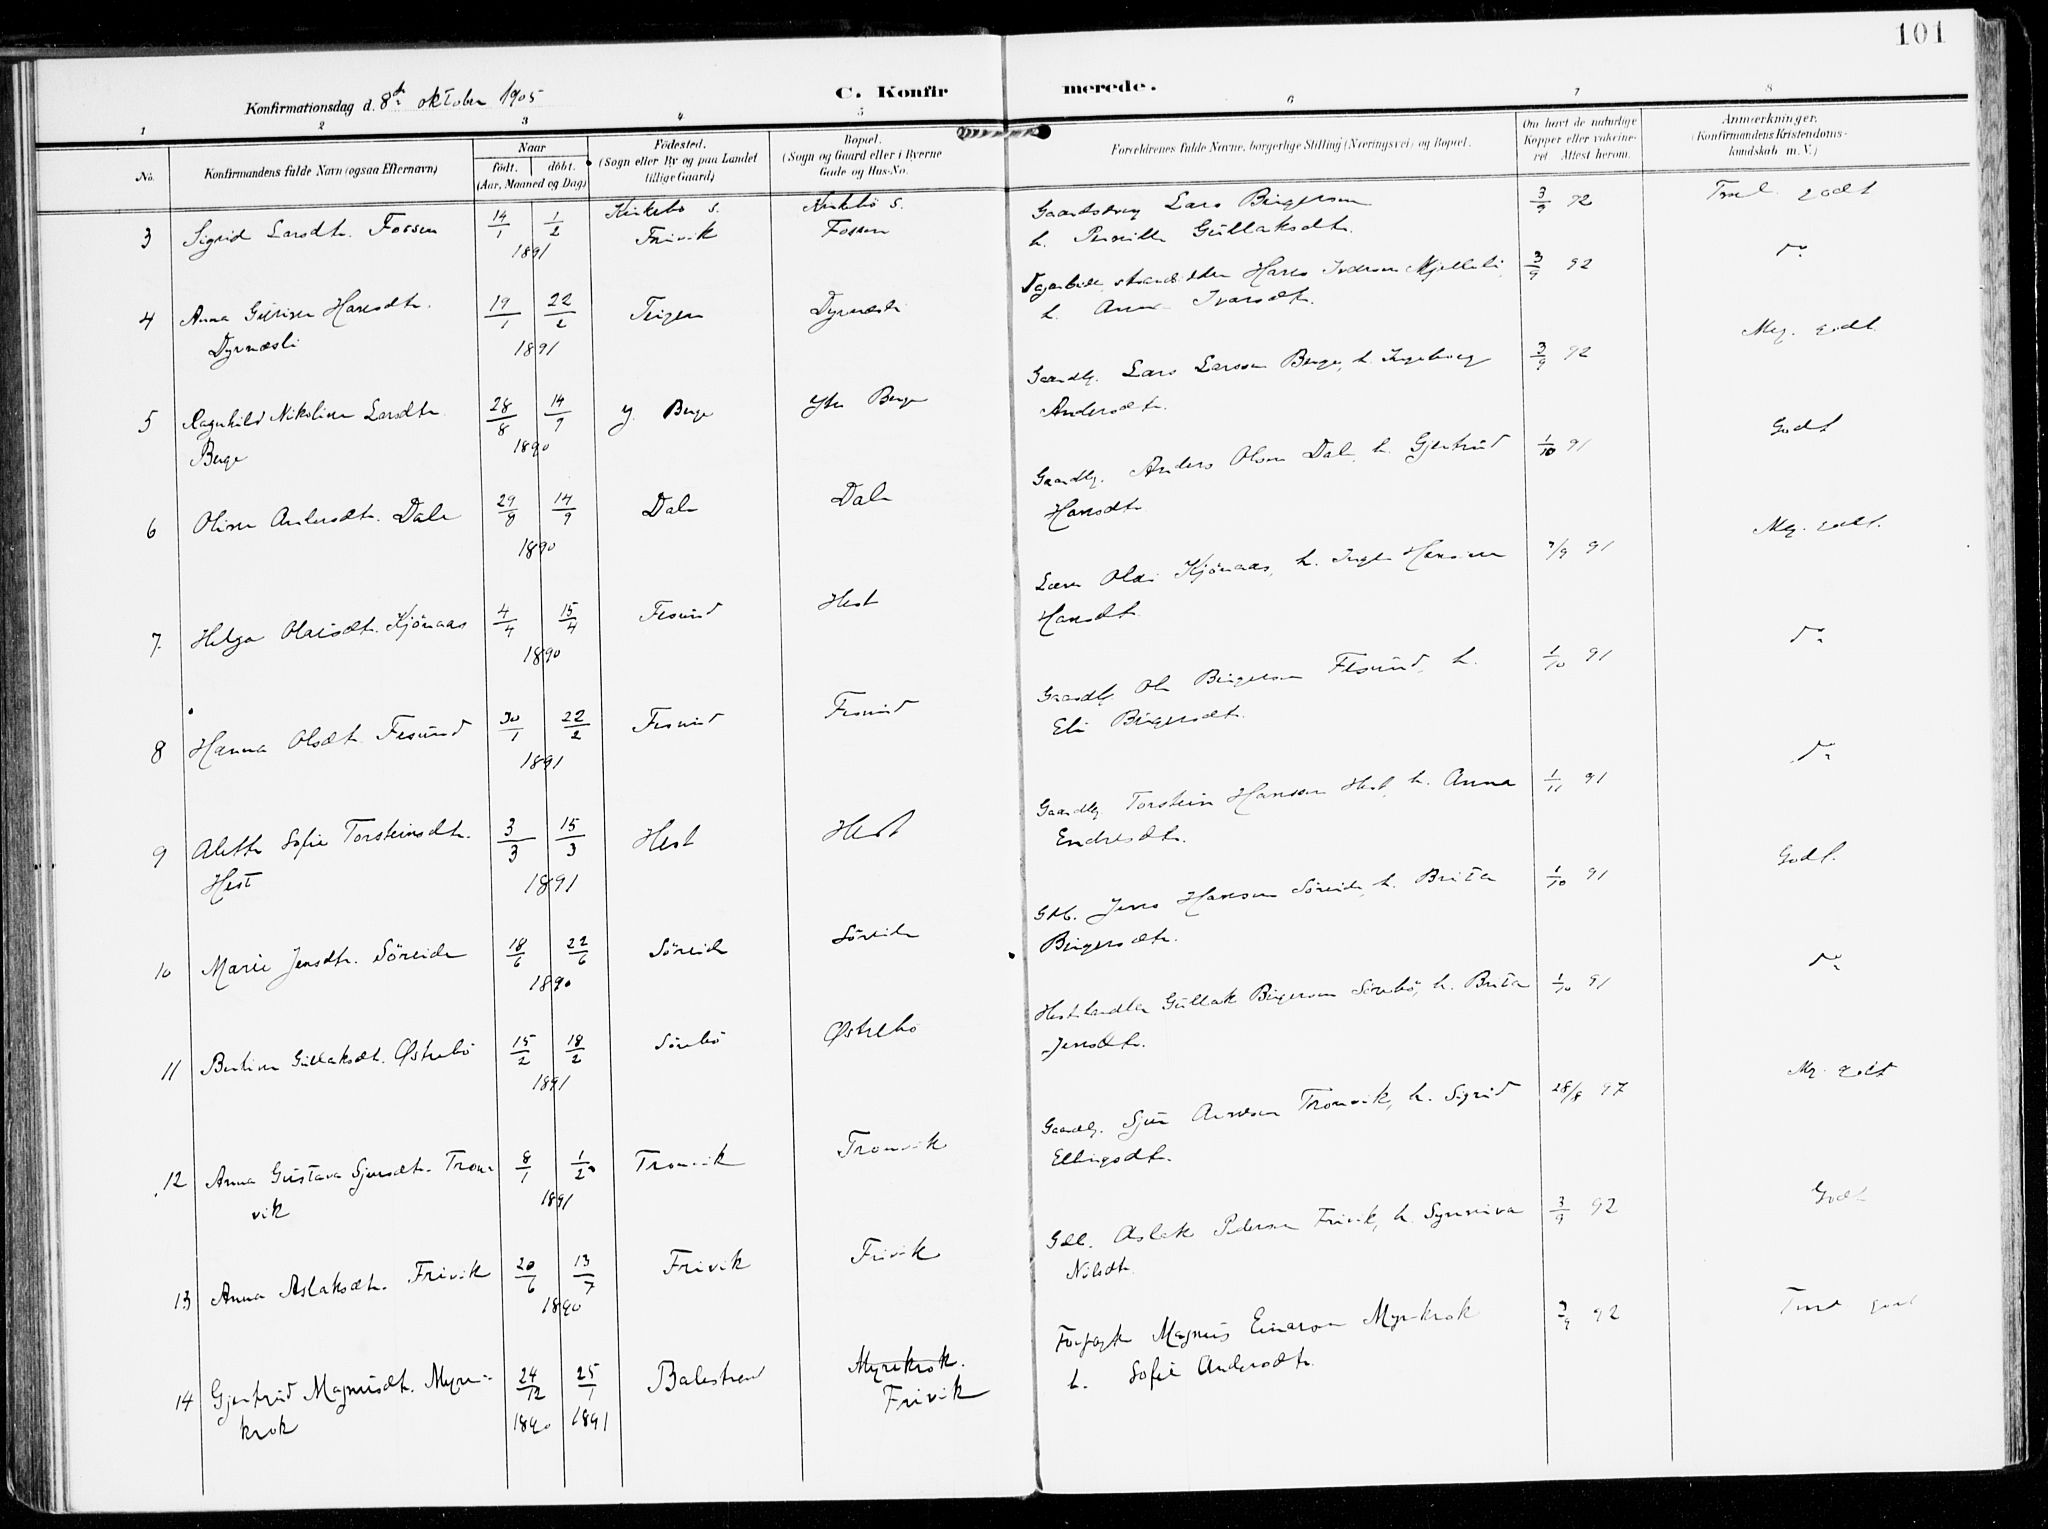 101
Konfirmationsdag d. 8de oktober 1905
C. Konfirmerede.
1 2 3 4 5 6 7 8
No.
Konfirmandens fulde Navn (ogsaa Efternavn)
Naar
født. døbt.
(Aar, Maaned og Dag)
Fødested.
(Sogn eller By og paa Landet
tillige Gaard)
Bopæl.
(Sogn og Gaard eller i Byerne
Gade og Hus-No.
Forældrenes fulde Navne, borgerlige Stilling (Næringsvei) og Bopæl.
Om havt de naturlige
Kopper eller vakcine-
ret. Attest herom.
Anmærkninger.
(Konfirmandens Kristendoms-
kundskab m. V.)
3 Sigrid Larsdtr. Fossen 14/1 1/2 Kirkebø s. Kirkebø s. Lars Birgerson 3/9 92 godt
1891 Frivik Fossen h. Pernille Gullaksdtr.
4 Anna Hansdtr. 19/1 22/2 Teigen Dyrnæsli Hans 3/9 92 do
Dyrnæsli 1891 h. Anna Ivarsdtr.
5 Ragnhild Nikoline Larsdtr. 28/8 14/9 Y. Berge Ytre Berge Gaardbr. Lars Larsson Berge, h. Ingeborg 3/9 92 Meg. godt
Berge 1890 Andersdtr.
6 Oline Andersdtr. Dale 29/8 14/9 Dale Dale Gaardbr. Anders Olsen Dale, h. Gjertrud 1/10 91 Godt
1890 Hansdtr.
7. Helga Olaisdtr. Kjønaas 4/4 15/4 Fesund Hest Olai Kjønaas, h. Hansine 91 Meg. godt.
1890 Hansdtr.
8 Hanna Olsdtr. Fesund 30/1 22/2 Fesund Fesund Gaardbr. Ole Birgerson Fesund, h. 1/10 91 do
1891 Eli Birgersdtr.
9 Alethe Sofie Torsteinsdtr. 3/3 15/3 Hest Hest Gaardbr Torstein Hanson Hest, h. Anna 1/11 91 do
Hest 1891 Endresdtr.
10 Marie Jensdtr. Søreide 18/6 22/6 Søreide Søreide Gbr. Jens Hanson Søreide, h. Brita 1/10 91 Godt.
1890 Birgersdtr.
11 Bertine Gullaksdt. Østrebø 15/2 18/2 Sørebø Østrebø Hestehandler Gullak Birgerson Sørebø, h. Brita 1/10 91 do
1891 Jensdtr.
12 Anna Gustava Sjursdtr. Tron- 8/1 1/2 Tronvik Tronvik Gaardbr. Sjur Arneson Tronvik, h. Sigrid 28/8 97 Mg. godt
vik 1891 Ellingsdtr.
13 Anna Aslaksdtr. Frivik 20/6 13/7 Frivik Frivik Gbr. Aslak Pederson Frivik, h. Synneva 3/9 92 Godt
1890 Nilsdtr.
14 Gjertrud Magnusdt. Myre- 24/12 25/1 Balestrand Myrekrok. Magnus Einarson Myrekrok 3/9 92
krok 1890 1891 Frivik h. Sofie Andersdtr.